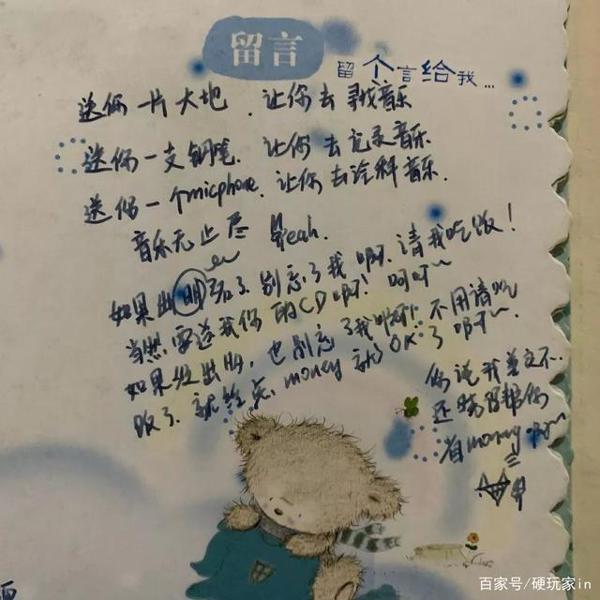 留言
留个言给我...
送你一片大地，让你去寻找音乐
送你一支钢笔，让你去记录音乐
送你一个micphone，让你去诠释音乐.
音乐无止尽 Yeah.
如果出明名了，别忘了我啊，请我吃饭！
当然要送我你的CD啊！呵呵~
如果没出明，也别忘了我啊！不用请吃
饭了，就给点money就OK了啊~
你说我差不..
还 帮你
省money 啊~
百家号/硬玩家in